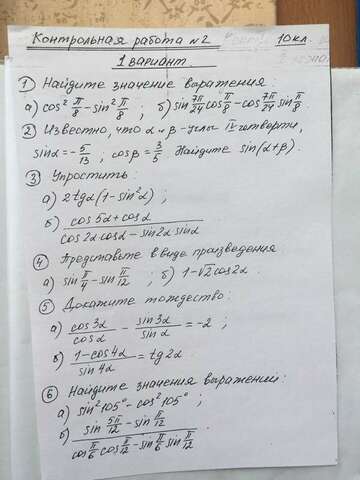 Контрольная работа №2 10 кл.
1 вариант
① Найдите значение выражения
а) cos² π/8 − sin² π/8 ; б) sin 7π/24 cos π/8 − cos 7π/24 sin π/8
② Известно, что α и β – углы IV четверти,
sinα = −5/13 , cosβ = 3/5. Найдите sin(α+β).
③ Упростить:
а) 2tgα(1−sin²α) ;
б) (cos5α + cosα)/(cos2α cosα − sin2α sinα)
④ Представьте в виде произведения
а) sin π/4 − sin π/12 ; б) 1−√2cos2α.
⑤ Докажите тождество:
а) cos3α/cosα − sin3α/sinα = −2 ;
б) (1−cos4α)/sin4α = tg2α
⑥ Найдите значения выражений:
а) sin²105° − cos²105° ;
б) (sin 5π/12 − sin π/12)/(cos π/6 cos π/12 − sin π/6 sin π/12)